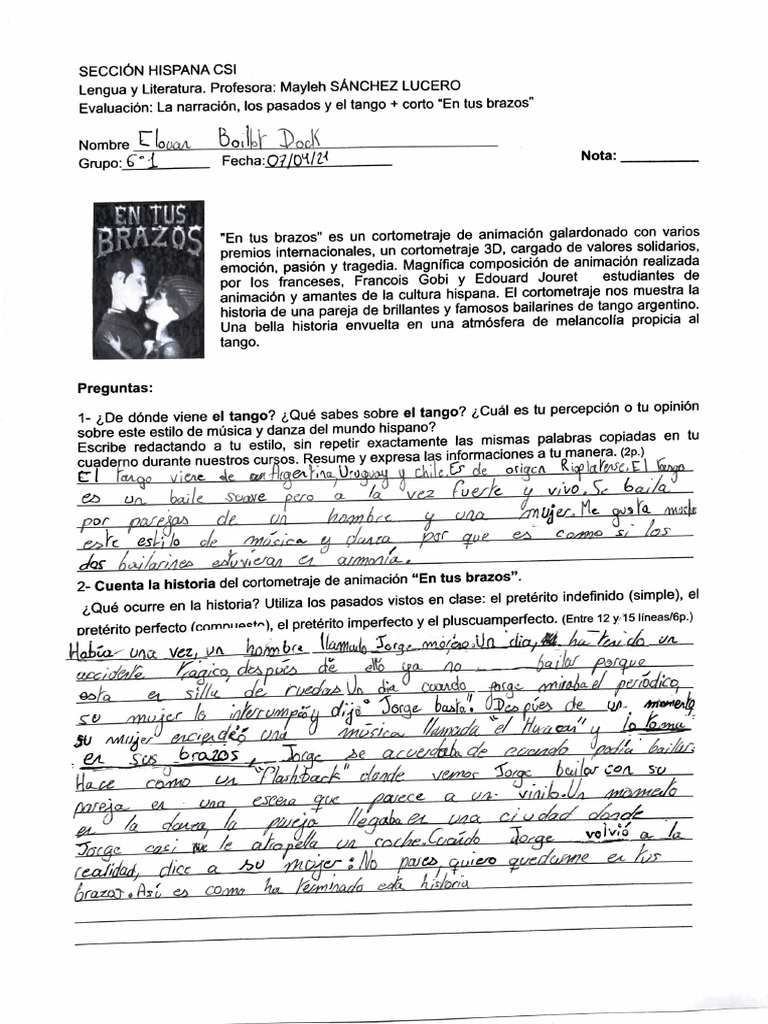 SECCIÓN HISPANA CSI
Lengua y Literatura. Profesora: Mayleh SÁNCHEZ LUCERO
Evaluación: La narración, los pasados y el tango + corto "En tus brazos"
Nombre Elouan Boillot Dock
Grupo: 6°1 Fecha: 07/04/21 Nota:
EN TUS
BRAZOS
"En tus brazos" es un cortometraje de animación galardonado con varios
premios internacionales, un cortometraje 3D, cargado de valores solidarios,
emoción, pasión y tragedia. Magnífica composición de animación realizada
por los franceses, Francois Gobi y Edouard Jouret estudiantes de
animación y amantes de la cultura hispana. El cortometraje nos muestra la
historia de una pareja de brillantes y famosos bailarines de tango argentino.
Una bella historia envuelta en una atmósfera de melancolía propicia al
tango.
Preguntas:
1- ¿De dónde viene el tango? ¿Qué sabes sobre el tango? ¿Cuál es tu percepción o tu opinión
sobre este estilo de música y danza del mundo hispano?
Escribe redactando a tu estilo, sin repetir exactamente las mismas palabras copiadas en tu
cuaderno durante nuestros cursos. Resume y expresa las informaciones a tu manera. (2p.)
El tango viene de Argentina, Uruguay y chile. Es de origen Rioplatense. El tango
es un baile suave pero a la vez fuerte y vivo. Se baila
por parejas de un hombre y una mujer. Me gusta mucho
este estilo de música y danza por que es como si los
dos bailarines estuvieran en armonía.
2- Cuenta la historia del cortometraje de animación "En tus brazos".
¿Qué ocurre en la historia? Utiliza los pasados vistos en clase: el pretérito indefinido (simple), el
pretérito perfecto (compuesto), el pretérito imperfecto y el pluscuamperfecto. (Entre 12 y 15 líneas/6p.)
Había una vez, un hombre llamado Jorge moreno. Un dia, ha tenido un
accidente trágico, después de ello ya no bailar porque
esta en silla de ruedas. Un dia cuando jorge miraba el periódico,
su mujer lo interrumpió y dijo "Jorge basta". Después de un momento
su mujer encendió una música llamada "el Huracan" y lo toma
en sus brazos, Jorge se acuerdaba de cuando podía bailar.
Hace como un "Flashback" donde vemos Jorge bailar con su
pareja en una escena que parece a un vinilo. Un momento
en la danza, la pareja llegaba en una ciudad donde
Jorge casi le atropella un coche. Cuándo Jorge volvió a la
realidad, dice a su mujer: No pares, quiero quedarme en tus
brazos. Así es como ha terminado esta historia